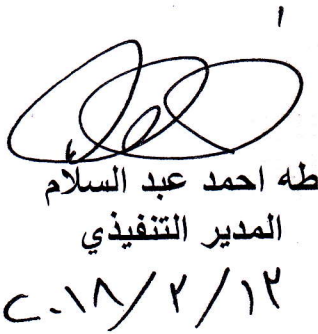 طه احمد عبد السلام
المدير التنفيذي
٢٠١٨/٢/١٢